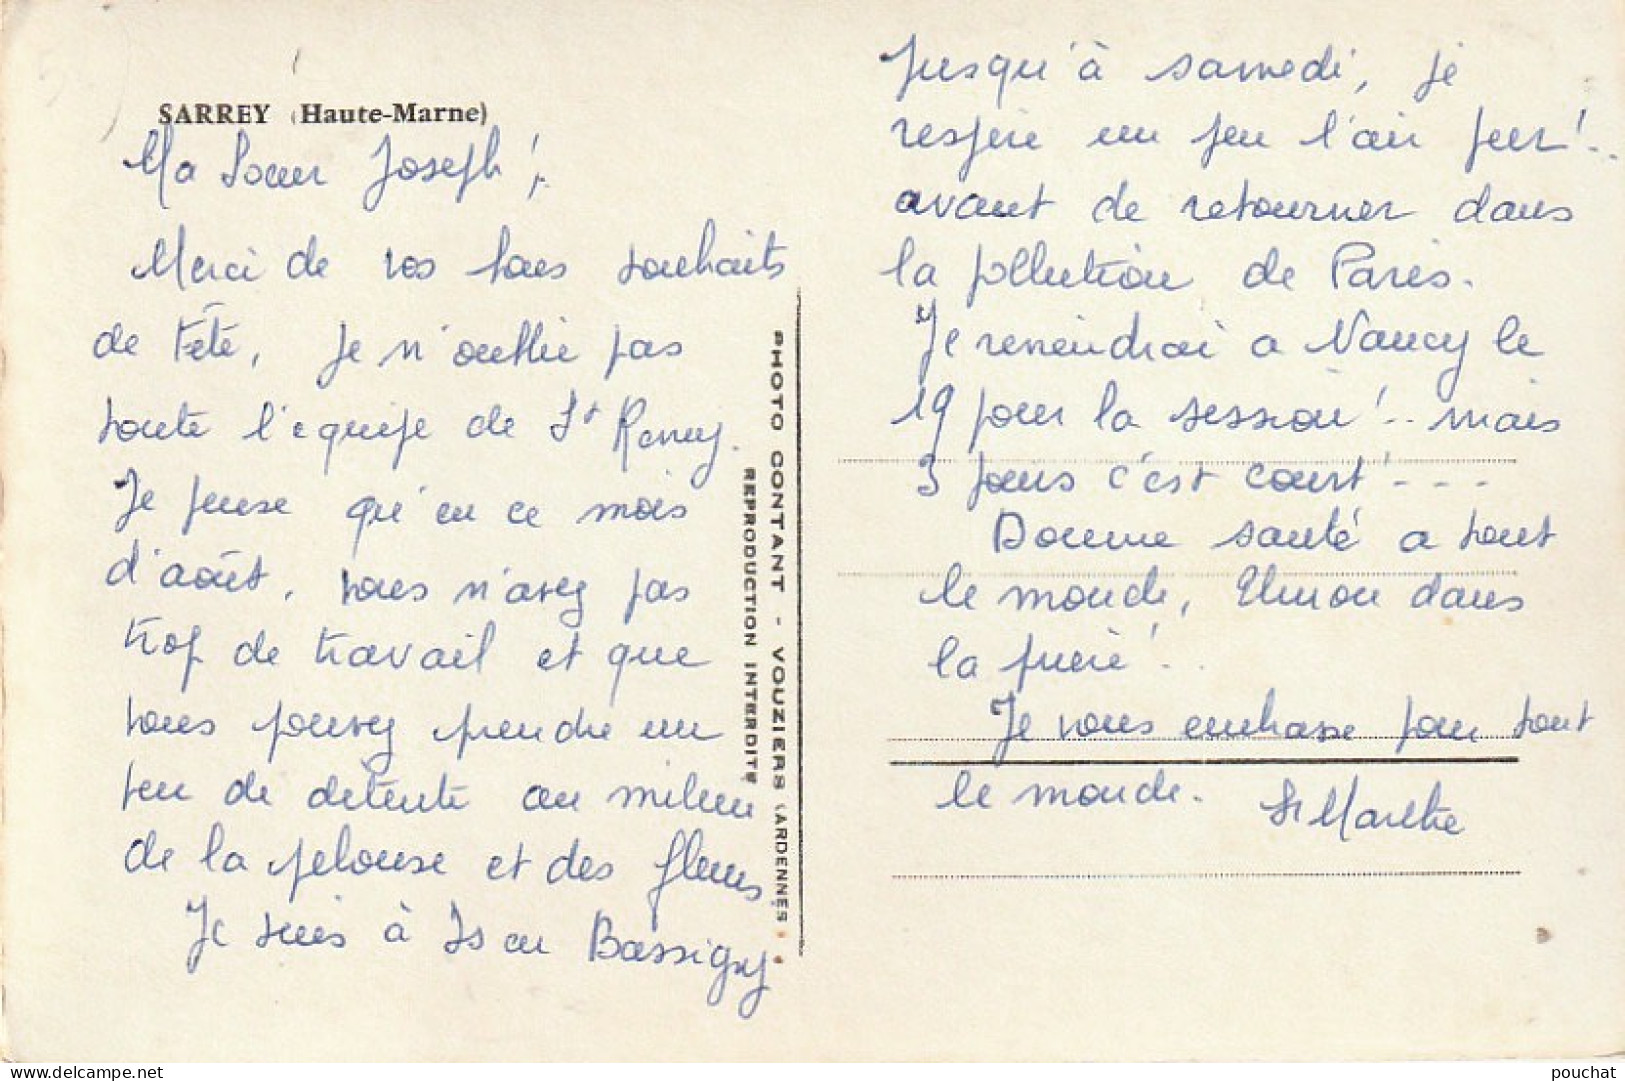 SARREY (Haute-Marne)
Ma Soeur Joseph !
Merci de vos bons souhaits
de fête, je n'oublie pas
toute l'équipe de St Remy.
Je pense qu'en ce mois
d'août, vous n'avez pas
trop de travail et que
vous pouvez prendre un
peu de détente au milieu
de la pelouse et des fleurs
Je suis à Is en Bassigny
PHOTO CONTANT - VOUZIERS (ARDENNES)
REPRODUCTION INTERDITE
Jusqu'à samedi, je
respire un peu l'air pur !..
avant de retourner dans
la pollution de Paris.
Je reviendrai a Nancy le
19 pour la session !.. mais
3 jours c'est court ! - - -
Bonne santé a tout
le monde, Union dans
la prière !..
Je vous embrasse pour tout
le monde. Sr Marthe
delcampe.net
pouchat